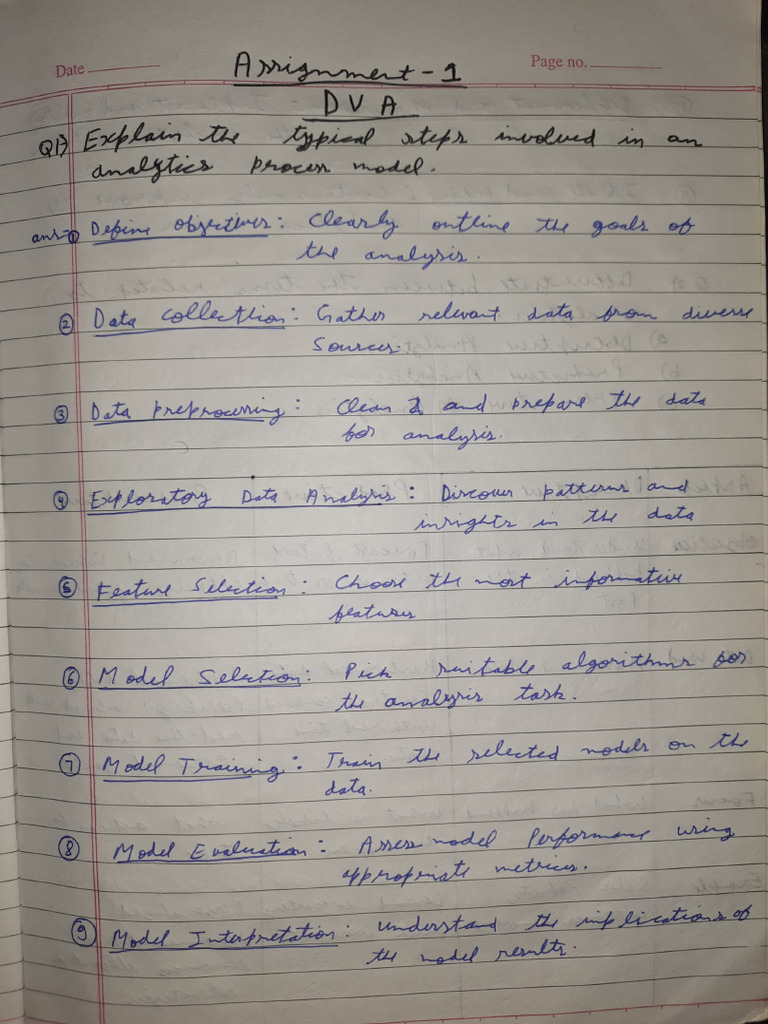 Date
Page no.
Assignment - 1
DVA
Q1) Explain the typical steps involved in an
analytics process model.
ans- ① Define objectives: Clearly outline the goals of
the analysis.
② Data collecttion: Gather relevant data from diverse
Sources.
③ Data preprocessing: Clean and prepare the data
for analysis.
④ Exploratory Data Analysis: Discover patterns and
insights in the data
⑤ Feature Selection: Choose the most informative
features
⑥ Model Selection: Pick suitable algorithms for
the analysis task.
⑦ Model Training: Train the selected models on the
data.
⑧ Model Evaluation: Asses model Performance using
appropriate metrices.
⑨ Model Interpretation: understand the implications of
the model results.